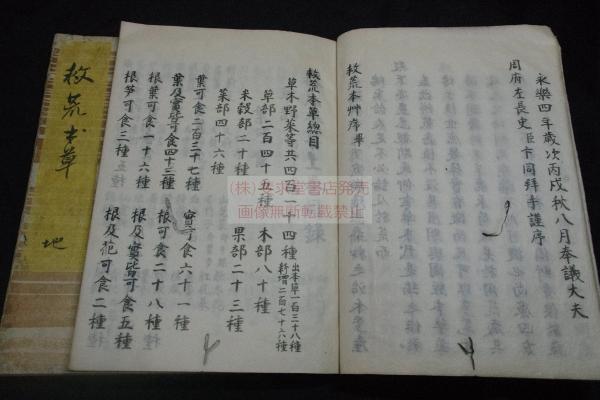 永樂四年歳次丙戌秋八月奉議大夫
周府左長史臣卞同拜手謹序
救荒本艸序畢
救荒本草總目
草木野菜等共四百一十四種 出本草一百三十八種 新増二百七十六種
草部二百四十五種 木部八十種
米穀部二十種 果部二十三種
菜部四十六種
葉可食二百三十七種 實可食六十一種
葉及實皆可食四十三種 根可食二十八種
根葉可食一十六種 根及實皆可食五種
根笋可食三種 根及花可食二種
救荒本草
地
(株)文求堂書店発売
画像無断転載禁止